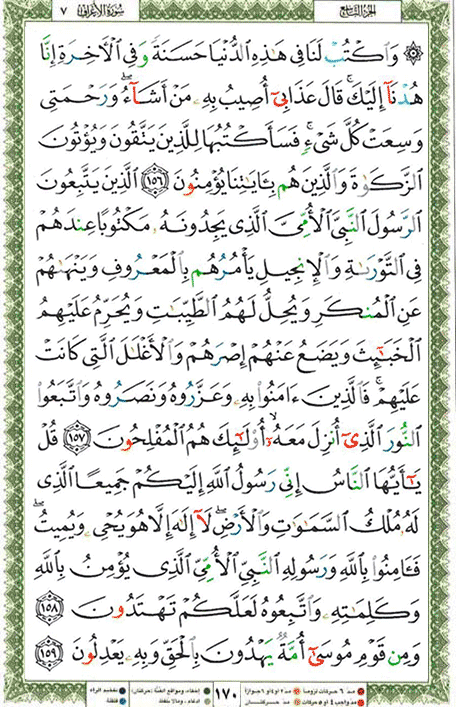 الجزء التاسع سُورَةُ الأَعْرَافِ ٧
۞ وَٱكْتُبْ لَنَا فِى هَٰذِهِ ٱلدُّنْيَا حَسَنَةً وَفِى ٱلْأَخِرَةِ إِنَّا
هُدْنَآ إِلَيْكَ ۚ قَالَ عَذَابِىٓ أُصِيبُ بِهِۦ مَنْ أَشَآءُ ۖ وَرَحْمَتِى
وَسِعَتْ كُلَّ شَىْءٍ ۚ فَسَأَكْتُبُهَا لِلَّذِينَ يَتَّقُونَ وَيُؤْتُونَ
ٱلزَّكَوٰةَ وَٱلَّذِينَ هُم بِـَٔايَٰتِنَا يُؤْمِنُونَ ١٥٦ ٱلَّذِينَ يَتَّبِعُونَ
ٱلرَّسُولَ ٱلنَّبِىَّ ٱلْأُمِّىَّ ٱلَّذِى يَجِدُونَهُۥ مَكْتُوبًا عِندَهُمْ
فِى ٱلتَّوْرَىٰةِ وَٱلْإِنجِيلِ يَأْمُرُهُم بِٱلْمَعْرُوفِ وَيَنْهَىٰهُمْ
عَنِ ٱلْمُنكَرِ وَيُحِلُّ لَهُمُ ٱلطَّيِّبَٰتِ وَيُحَرِّمُ عَلَيْهِمُ
ٱلْخَبَٰٓئِثَ وَيَضَعُ عَنْهُمْ إِصْرَهُمْ وَٱلْأَغْلَٰلَ ٱلَّتِى كَانَتْ
عَلَيْهِمْ ۚ فَٱلَّذِينَ ءَامَنُوا۟ بِهِۦ وَعَزَّرُوهُ وَنَصَرُوهُ وَٱتَّبَعُوا۟
ٱلنُّورَ ٱلَّذِىٓ أُنزِلَ مَعَهُۥٓ ۙ أُو۟لَٰٓئِكَ هُمُ ٱلْمُفْلِحُونَ ١٥٧ قُلْ
يَٰٓأَيُّهَا ٱلنَّاسُ إِنِّى رَسُولُ ٱللَّهِ إِلَيْكُمْ جَمِيعًا ٱلَّذِى
لَهُۥ مُلْكُ ٱلسَّمَٰوَٰتِ وَٱلْأَرْضِ ۖ لَآ إِلَٰهَ إِلَّا هُوَ يُحْىِۦ وَيُمِيتُ ۖ
فَـَٔامِنُوا۟ بِٱللَّهِ وَرَسُولِهِ ٱلنَّبِىِّ ٱلْأُمِّىِّ ٱلَّذِى يُؤْمِنُ بِٱللَّهِ
وَكَلِمَٰتِهِۦ وَٱتَّبِعُوهُ لَعَلَّكُمْ تَهْتَدُونَ ١٥٨
وَمِن قَوْمِ مُوسَىٰٓ أُمَّةٌ يَهْدُونَ بِٱلْحَقِّ وَبِهِۦ يَعْدِلُونَ ١٥٩
١٧٠